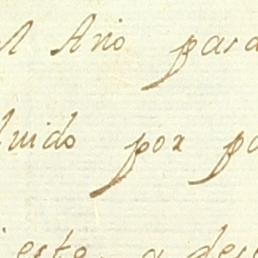 l Año para
luido por pa
este, a des